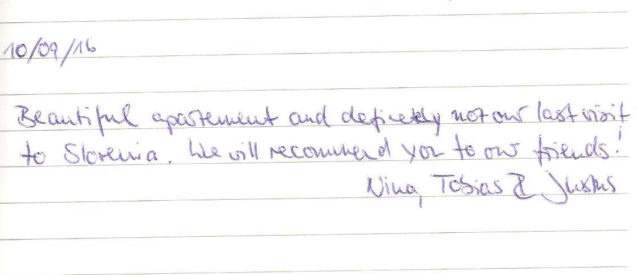 10/09/16
Beautiful apartement and definetely not our last visit
to Slovenia. We will recommend you to our friends!
Nina, Tobias & Justus